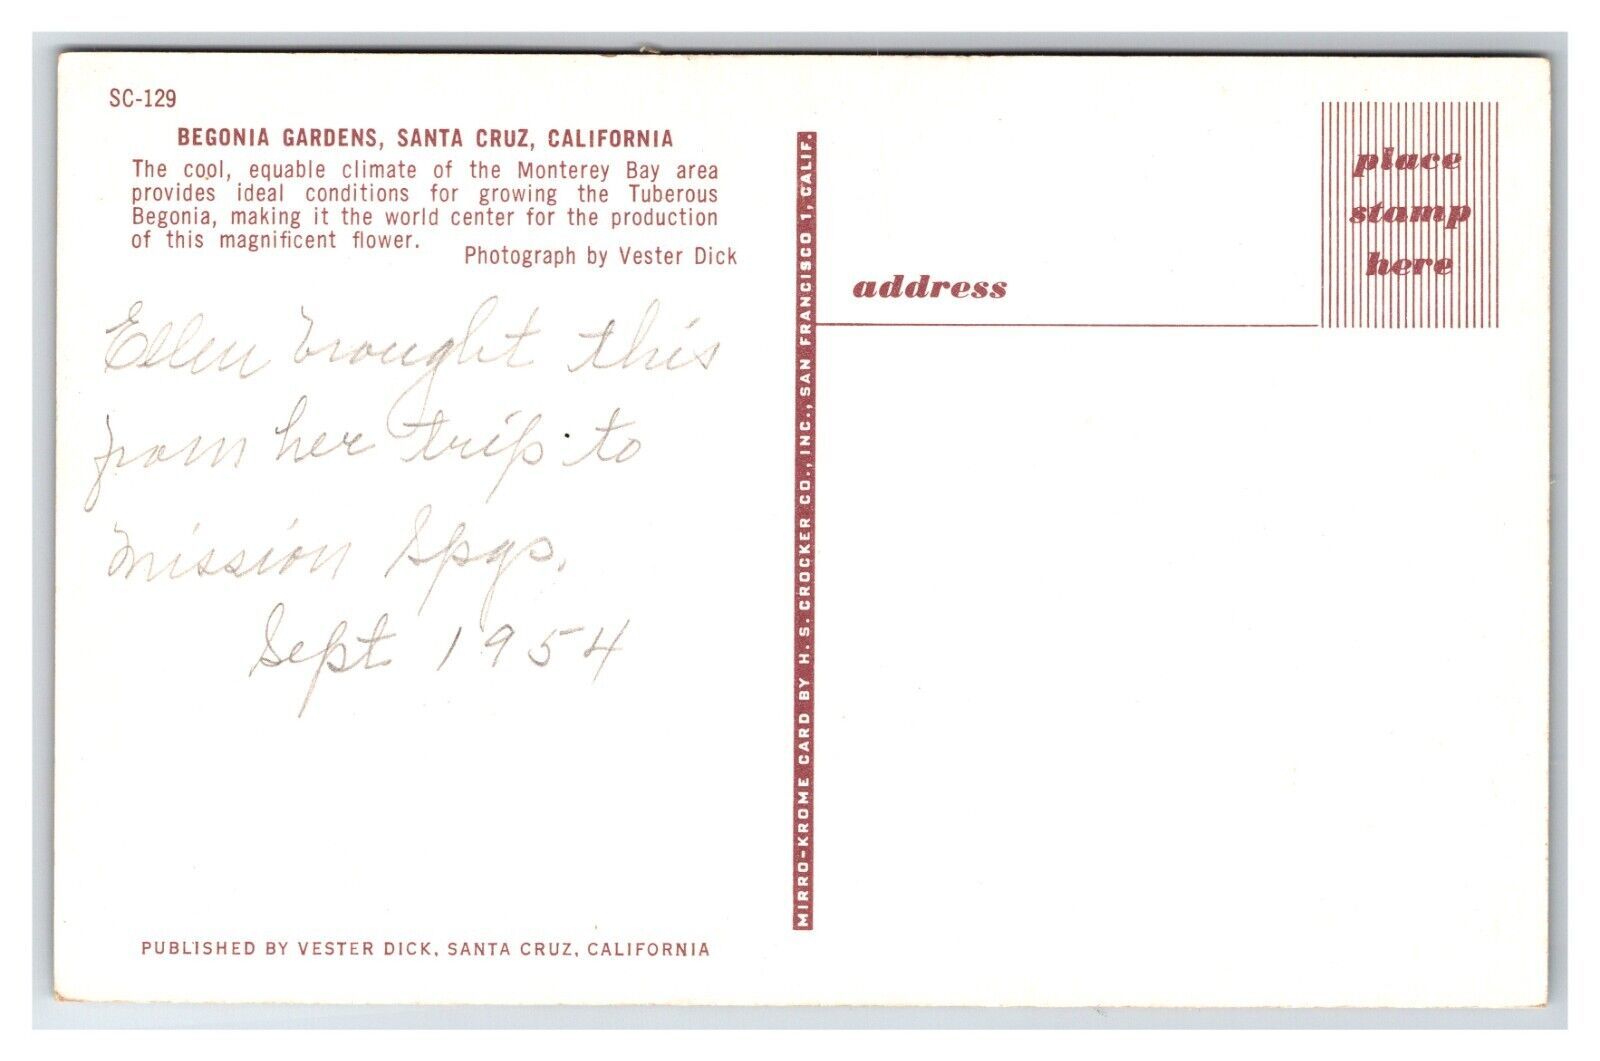 SC-129
BEGONIA GARDENS, SANTA CRUZ, CALIFORNIA
The cool, equable climate of the Monterey Bay area
provides ideal conditions for growing the Tuberous
Begonia, making it the world center for the production
of this magnificent flower.
Photograph by Vester Dick
Ellen brought this
from her trip to
Mission Spgs.
Sept 1954
PUBLISHED BY VESTER DICK, SANTA CRUZ, CALIFORNIA
MIRRO-KROME CARD BY H. S. CROCKER CO., INC., SAN FRANCISCO 1, CALIF.
address
place
stamp
here